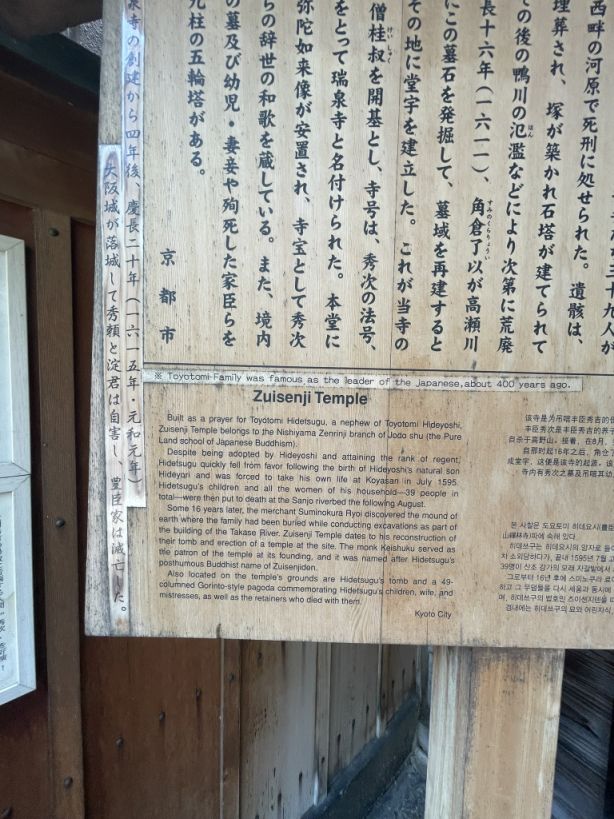 三十九人が
西畔の河原で死刑に処せられた。遺骸は、
埋葬され、塚が築かれ石塔が建てられて
の後の鴨川の氾濫などにより次第に荒廃
長十六年(一六一一)、角倉了以が高瀬川
にこの墓石を発掘して、墓域を再建すると
その地に堂宇を建立した。これが当寺の
僧桂叔を開基とし、寺号は、秀次の法号、
をとって瑞泉寺と名付けられた。本堂に
弥陀如来像が安置され、寺宝として秀次
らの辞世の和歌を蔵している。また、境内
の墓及び幼児・妻妾や殉死した家臣らを
九柱の五輪塔がある。
京都市
泉寺の創建から四年後、慶長二十年(一六一五年・元和元年)
大阪城が落城して秀頼と淀君は自害し、豊臣家は滅亡した。
※ Toyotomi Family was famous as the leader of the Japanese,about 400 years ago.
Zuisenji Temple
Built as a prayer for Toyotomi Hidetsugu, a nephew of Toyotomi Hideyoshi,
Zuisenji Temple belongs to the Nishiyama Zenrinji branch of Jodo shu (the Pure
Land school of Japanese Buddhism).
Despite being adopted by Hideyoshi and attaining the rank of regent,
Hidetsugu quickly fell from favor following the birth of Hideyoshi's natural son
Hideyori and was forced to take his own life at Koyasan in July 1595.
Hidetsugu's children and all the women of his household—39 people in
total—were then put to death at the Sanjo riverbed the following August.
Some 16 years later, the merchant Suminokura Ryoi discovered the mound of
earth where the family had been buried while conducting excavations as part of
the building of the Takase River. Zuisenji Temple dates to his reconstruction of
their tomb and erection of a temple at the site. The monk Keishuku served as
the patron of the temple at its founding, and it was named after Hidetsugu's
posthumous Buddhist name of Zuisenjiden.
Also located on the temple's grounds are Hidetsugu's tomb and a 49-
columned Gorinto-style pagoda commemorating Hidetsugu's children, wife, and
mistresses, as well as the retainers who died with them.
Kyoto City
该寺是为吊唁丰臣秀吉的
丰臣秀次是丰臣秀吉的养
自杀于高野山。接着，在8月，
自那时起16年之后，角仓了
成堂宇，这便是该寺的起源。该
寺内有秀次之墓及吊唁其幼
본 사찰은 도요토미 히데요시(豊臣
파에 속해 있다.
히데쓰구는 히데요시의 양자로
끝내 1595년 7월
39명이 산조 강가의 모래 자갈밭에서
그로부터 16년 후에 스미노쿠라
하고 그 무덤들을 다시 세움과 동시에
경내에는 히데쓰구의 묘와 어린자식,